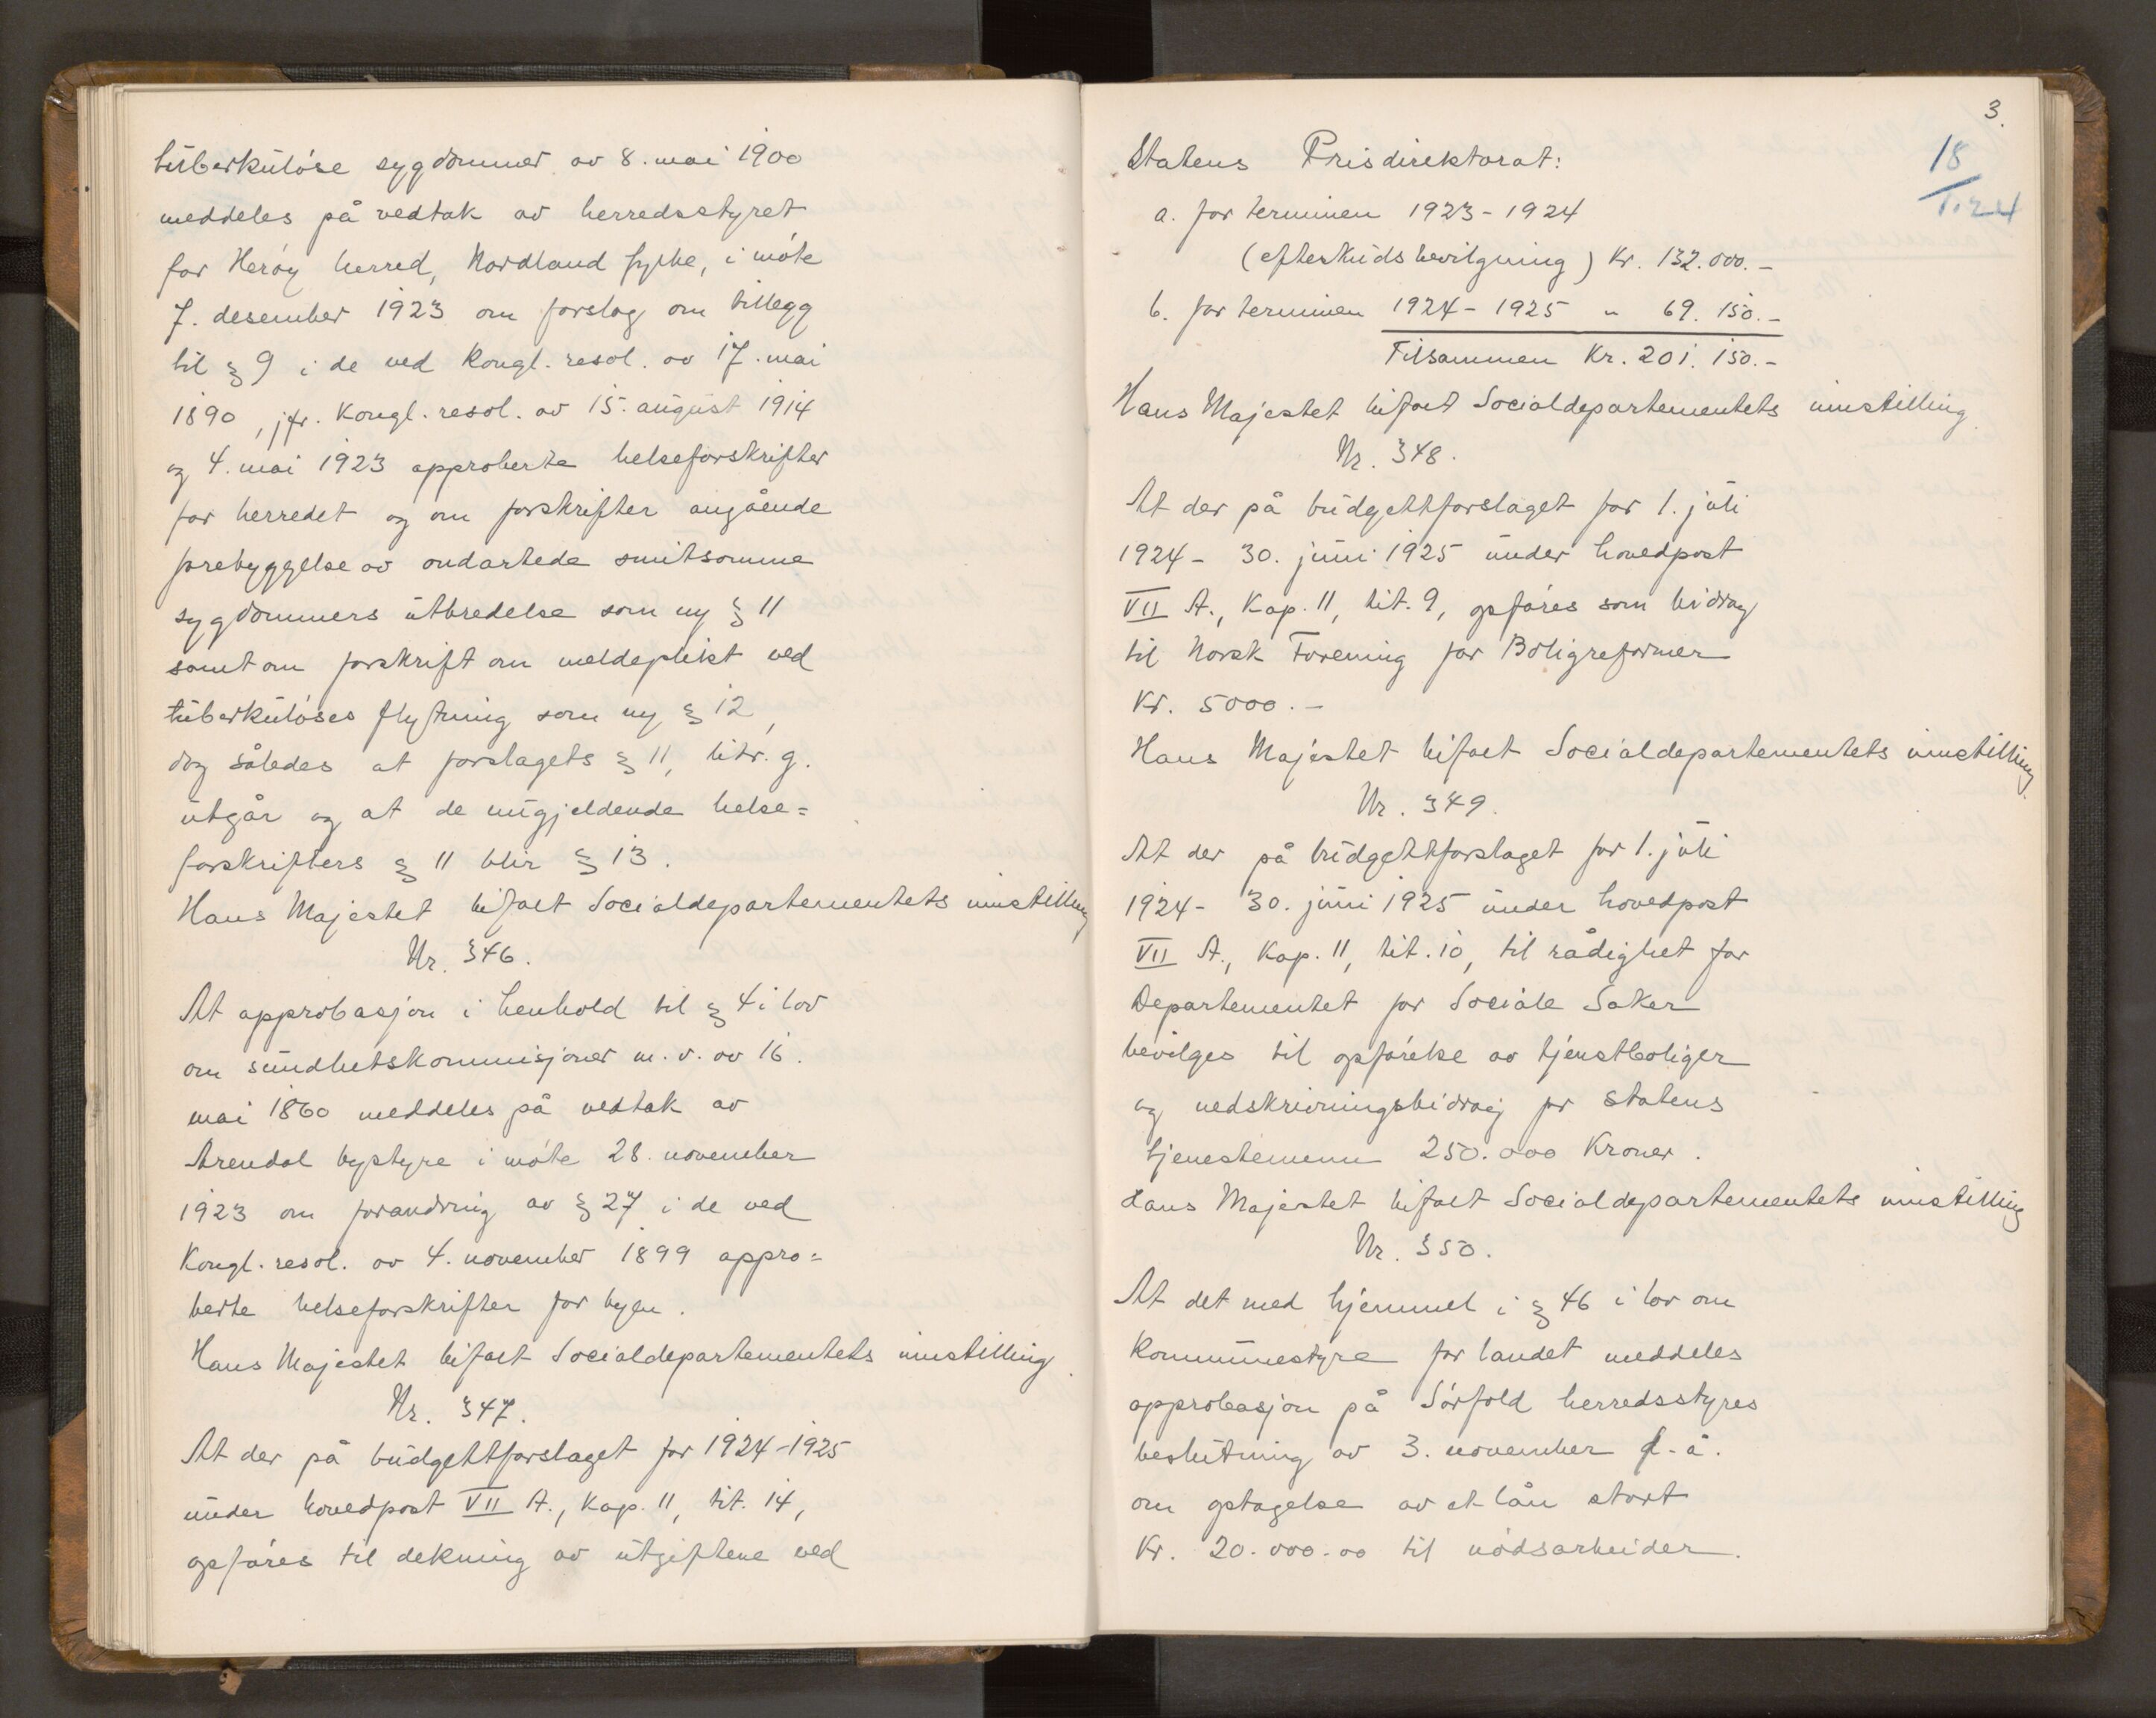 tuberkuløse sygdommer av 8. mai 1900
meddeles på vedtak av herredsstyret
for Herøy herred, Nordland fylke, i møte
7. desember 1923 om forslag om tillegg
til § 9 i de ved Kongl. resol. av 17. mai
1890, jfr. Kongl. resol. av 15. august 1914
og 4. mai 1923 approberte helseforskrifter
for herredet og om forskrifter angående
forebyggelse av ondartede smitsomme
sygdommers utbredelse som ny § 11
samt om forskrift om meldeplikt ved
tuberkuløses flytning som ny § 12,
dog således at forslagets § 11, litr. g.
utgår og at de nugjeldende helse=
forskrifters § 11 blir § 13.
Hans Majestet bifalt Socialdepartementets innstilling
Nr. 346.
At approbasjon i henhold til § 4 i lov
om sundhetskommisjoner m. v. av 16.
mai 1860 meddeles på vedtak av
Arendal bystyre i møte 28. november
1923 om forandring av § 27 i de ved
Kongl. resol. av 4. november 1899 appro=
berte helseforskrifter for byen.
Hans Majestet bifalt Socialdepartementets innstilling.
Nr. 347.
At der på budgettforslaget for 1924-1925
under hovedpost VII A., Kap. 11, tit. 14,
opføres til dekning av utgiftene ved
3.
18/1.24
Statens Prisdirektorat:
a. for terminen 1923-1924
(efterskudsbevilgning) Kr. 132.000.-
b. for terminen 1924-1925 " 69.150.-
Tilsammen Kr. 201.150.-
Hans Majestet bifalt Socialdepartementets innstilling.
Nr. 348.
At der på budgettforslaget for 1. juli
1924- 30. juni 1925 under hovedpost
VII A., Kap. 11, tit. 9, opføres som bidrag
til Norsk Forening for Boligreformer
Kr. 5000.-
Hans Majestet bifalt Socialdepartementets innstilling.
Nr. 349.
At der på budgettforslaget for 1. juli
1924- 30. juni 1925 under hovedpost
VII A., Kap. 11, tit. 10, til rådighet for
Departementet for Sociale Saker
bevilges til opførelse av tjenstboliger
og nedskrivningsbidrag for statens
tjenestemenn 250.000 Kroner.
Hans Majestet bifalt Socialdepartementets innstilling
Nr. 350.
At det med hjemmel i § 46 i lov om
Kommunestyre for landet meddeles
approbasjon på Sørfold herredsstyres
beslutning av 3. november f. å.
om optagelse av et lån stort
Kr. 20.000.00 til nødsarbeider.